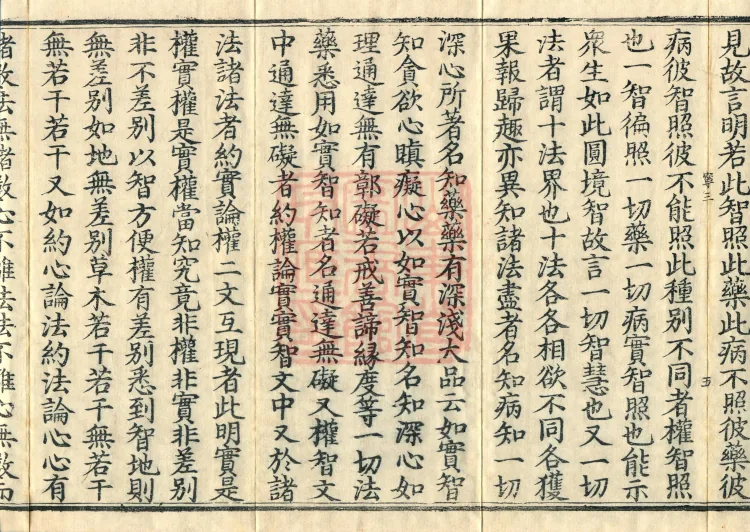 見故言明若此智照此藥此病不照彼藥彼
病彼智照彼不能照此種別不同者權智照
也一智徧照一切藥一切病實智照也能示
眾生如此圓境智故言一切智慧也又一切
法者謂十法界也十法各各相欲不同各獲
果報歸趣亦異知諸法盡者名知病知一切
深心所著名知藥藥有深淺大品云如實智
知貪欲心瞋癡心以如實智知名知深心如
理通達無有鄣礙若戒善諦緣度等一切法
藥悉用如實智知者名通達無礙又權智文
中通達無礙者約權論實實智文中又於諸
法諸法者約實論權二文互現者此明實是
權實權是實權當知究竟非權非實非差別
非不差別以智方便權有差別悉到智地則
無差別如地無差別草木若干若干無若干
無若干若干又如約心論法約法論心心有
諸數法無諸數心不離法法不離心無數而
寧三
五